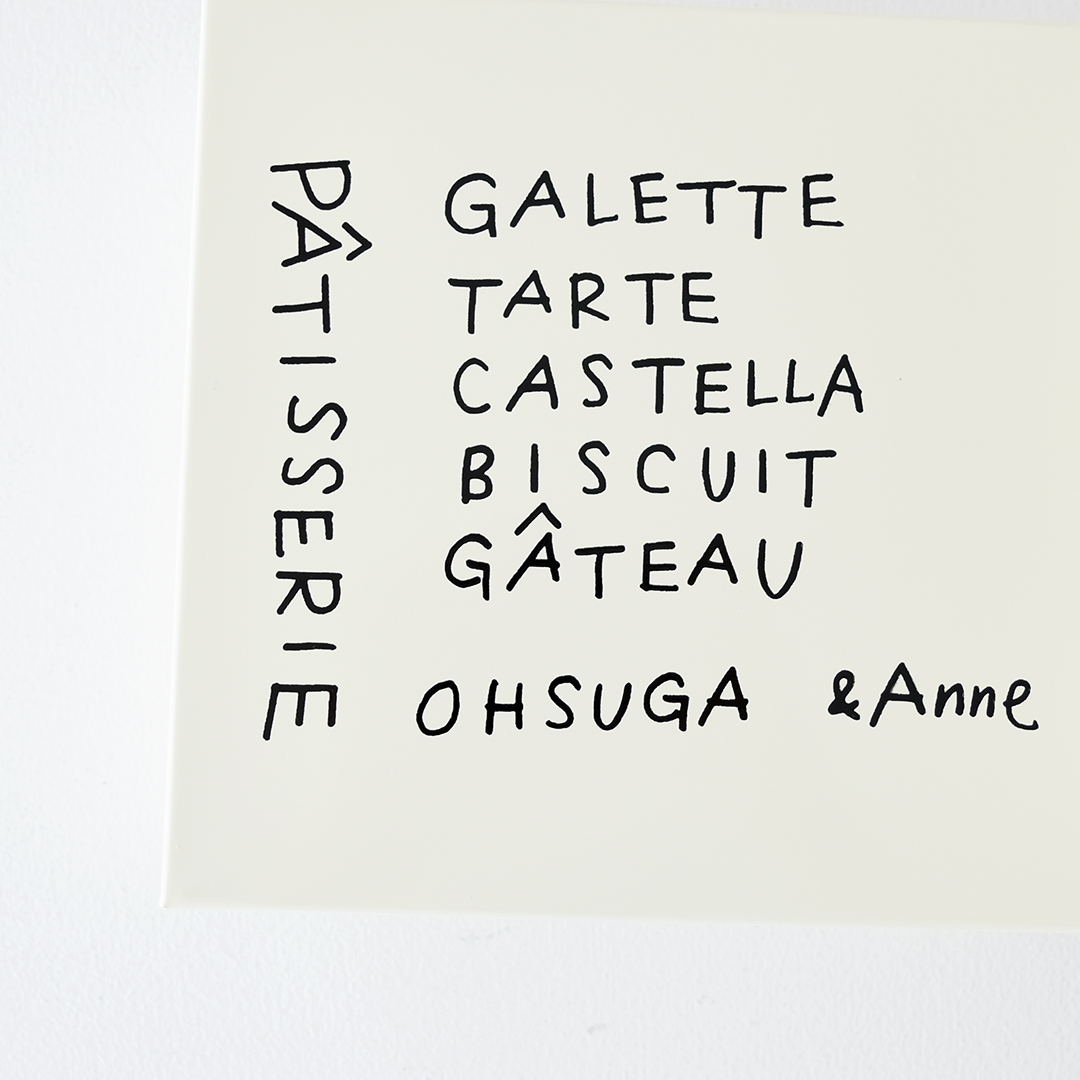 PÂTISSERIE
GALETTE
TARTE
CASTELLA
BISCUIT
GÂTEAU
OHSUGA &Anne